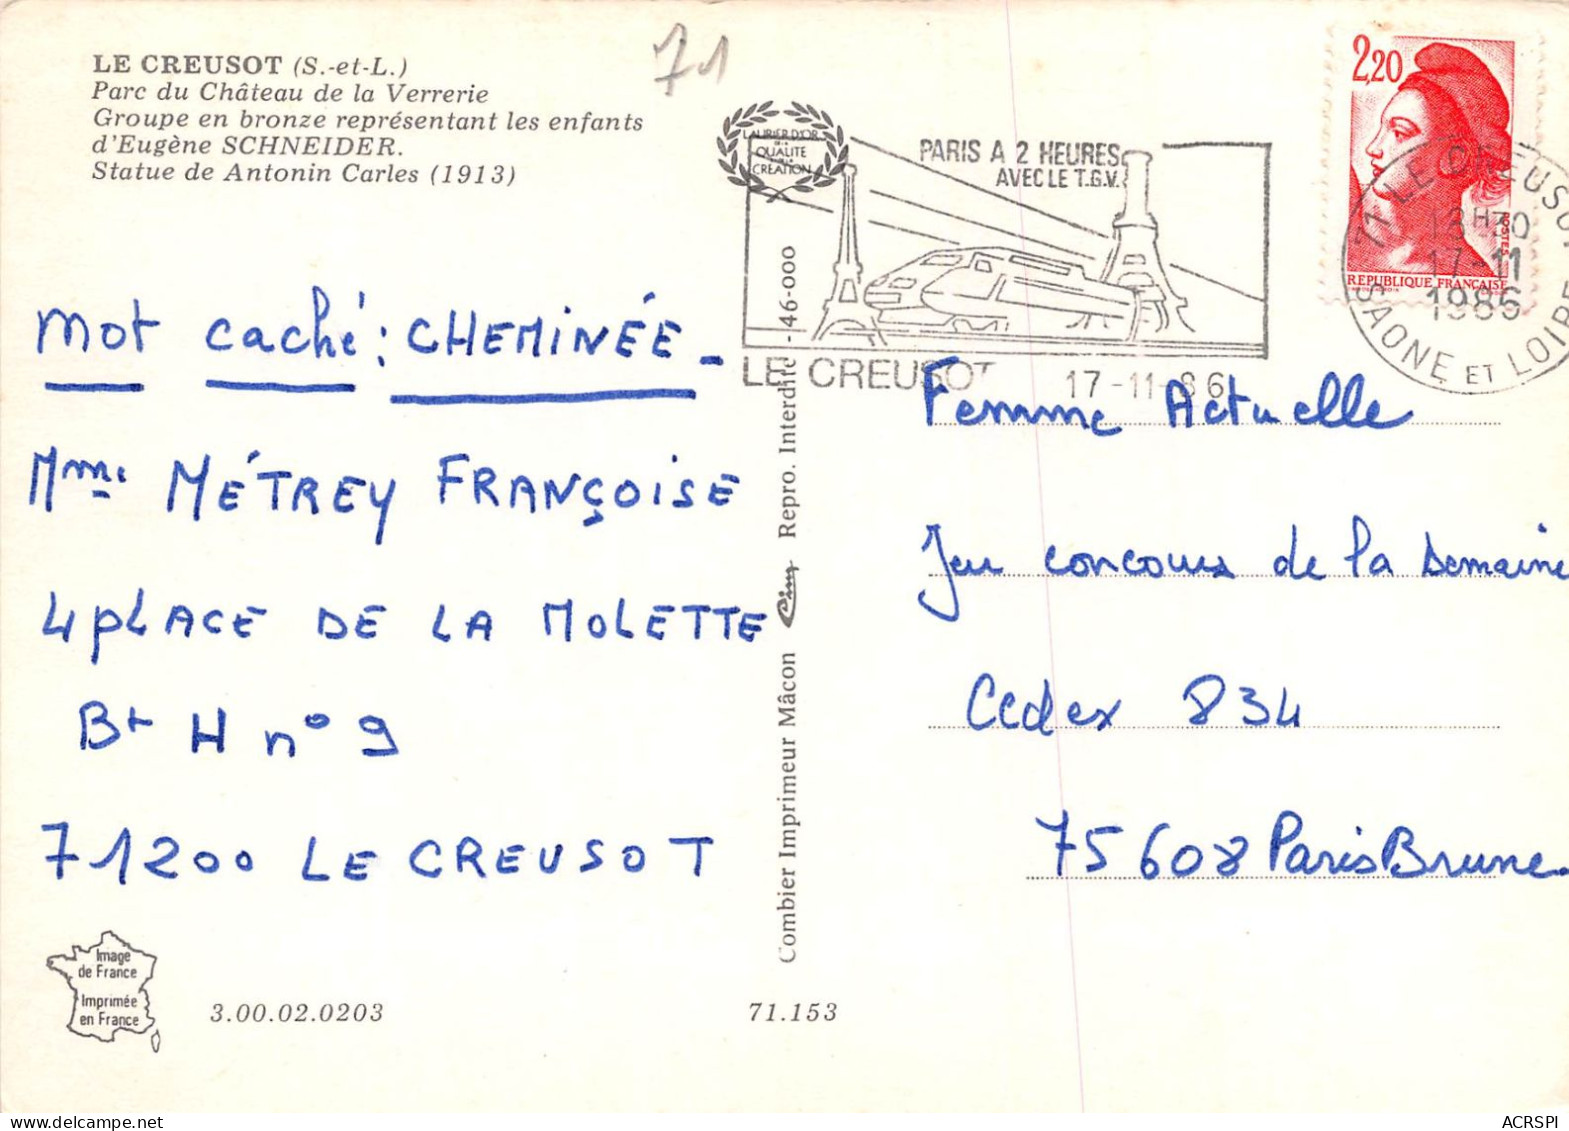 LE CREUSOT (S.-et-L.)
Parc du Château de la Verrerie
Groupe en bronze représentant les enfants
d'Eugène SCHNEIDER.
Statue de Antonin Carles (1913)
71
LAURIER D'OR
DE LA
QUALITE
DE LA
CREATION
PARIS A 2 HEURES
AVEC LE T.G.V.
LE CREUSOT 17-11-86
2,20
POSTES
REPUBLIQUE FRANÇAISE
71 LE CREUSOT
13H30
17-11
1986
SAONE ET LOIRE
mot caché : CHEMINÉE -
Mme MÉTREY FRANÇOISE
4 PLACE DE LA MOLETTE
Bt H n° 9
71200 LE CREUSOT
Combier Imprimeur Mâcon Cim Repro. Interdite - 46-000
Femme Actuelle
Jeu concours de la semaine
Cedex 834
75608 Paris Brune.
Image
de France
Imprimée
en France
3.00.02.0203
71.153
ACRSPI